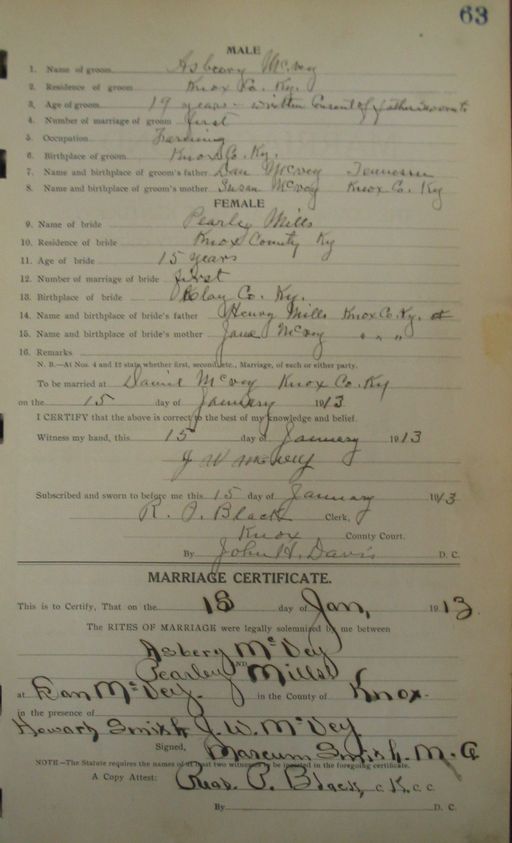 63
MALE
1. Name of groom Asbery McVey
2. Residence of groom Knox Co. Ky.
3. Age of groom 19 years - written Consent of father
4. Number of marriage of groom first
5. Occupation Farming
6. Birthplace of groom Knox Co. Ky.
7. Name and birthplace of groom's father Dan McVey Tennessee
8. Name and birthplace of groom's mother Susan McVey Knox Co. Ky
FEMALE
9. Name of bride Pearley Mills
10. Residence of bride Knox County Ky
11. Age of bride 15 years
12. Number of marriage of bride first
13. Birthplace of bride Clay Co. Ky.
14. Name and birthplace of bride's father Henry Mills Knox Co. Ky.
15. Name and birthplace of bride's mother Jane McVey " " "
16. Remarks
N. B.—At Nos. 4 and 12 state whether first, second, etc., Marriage, of each or either party.
To be married at Daniel McVey Knox Co. Ky
on the 15 day of January 1913
I CERTIFY that the above is correct to the best of my knowledge and belief.
Witness my hand, this 15 day of January 1913
J W McVey
Subscribed and sworn to before me this 15 day of January 1913
R. P. Black Clerk,
Knox County Court.
By John H. Davis D. C.
MARRIAGE CERTIFICATE.
This is to Certify, That on the 15 day of Jan, 1913.
The RITES OF MARRIAGE were legally solemnized by me between
Asbery McVey
AND
Pearley Mills
at Dan McVey. in the County of Knox.
in the presence of
Howard Smith J. W. McVey
Signed, Marcum Smith. M. G
NOTE—The Statute requires the names of at least two witnesses to be inserted in the foregoing certificate.
A Copy Attest: P. Black, c K. c c
By D. C.